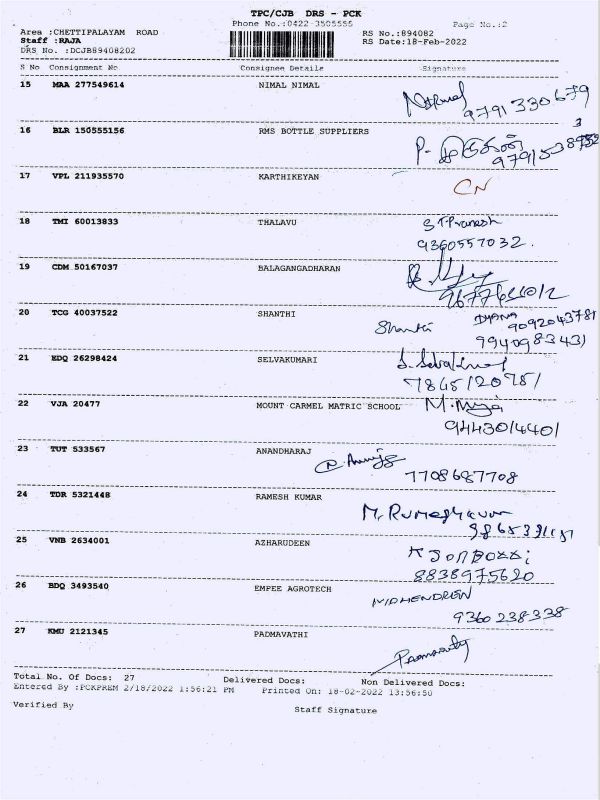 TPC/CJB DRS - PCK
Phone No.:0422-3505556
Page No.:2
Area :CHETTIPALAYAM ROAD
RS No.:894082
Staff :RAJA
RS Date:18-Feb-2022
DRS No. :DCJB89408202
S No Consignment No Consignee Details Signature
15 MAA 277549614 NIMAL NIMAL
Nirmal
9791330679
16 BLR 150555156 RMS BOTTLE SUPPLIERS
P-
17 VPL 211935570 KARTHIKEYAN
CN
18 TMI 60013833 THALAVU
S T Pranesh
9360557032.
19 CDM 50167037 BALAGANGADHARAN
20 TCG 40037522 SHANTHI
Shanthi
9092043781
9940983431
21 EDQ 26298424 SELVAKUMARI
22 VJA 20477 MOUNT CARMEL MATRIC SCHOOL
9443014401
23 TUT 533567 ANANDHARAJ
7708687708
24 TDR 5321448 RAMESH KUMAR
25 VNB 2634001 AZHARUDEEN
8838975620
26 BDQ 3493540 EMPEE AGROTECH
9360238338
27 KMU 2121345 PADMAVATHI
Total No. Of Docs: 27 Delivered Docs: Non Delivered Docs:
Entered By :PCKPREM 2/18/2022 1:56:21 PM Printed On: 18-02-2022 13:56:50
Verified By
Staff Signature